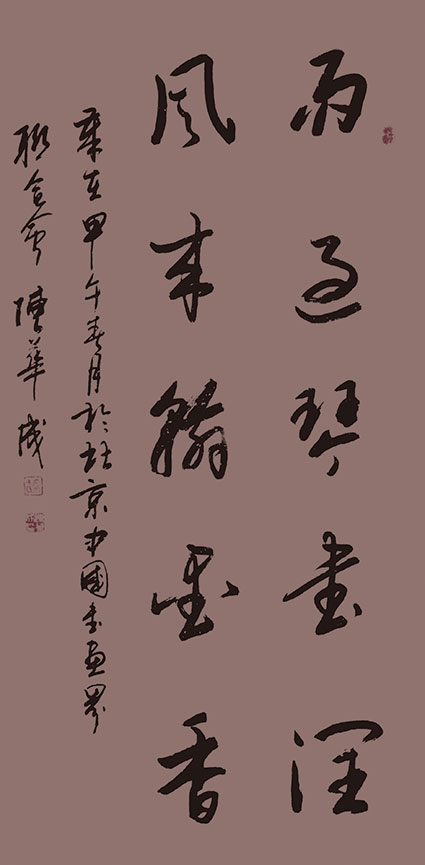 雨過琴書潤
風來翰墨香
歲在甲午春月於北京中國書畫界
聯合會陳華盛